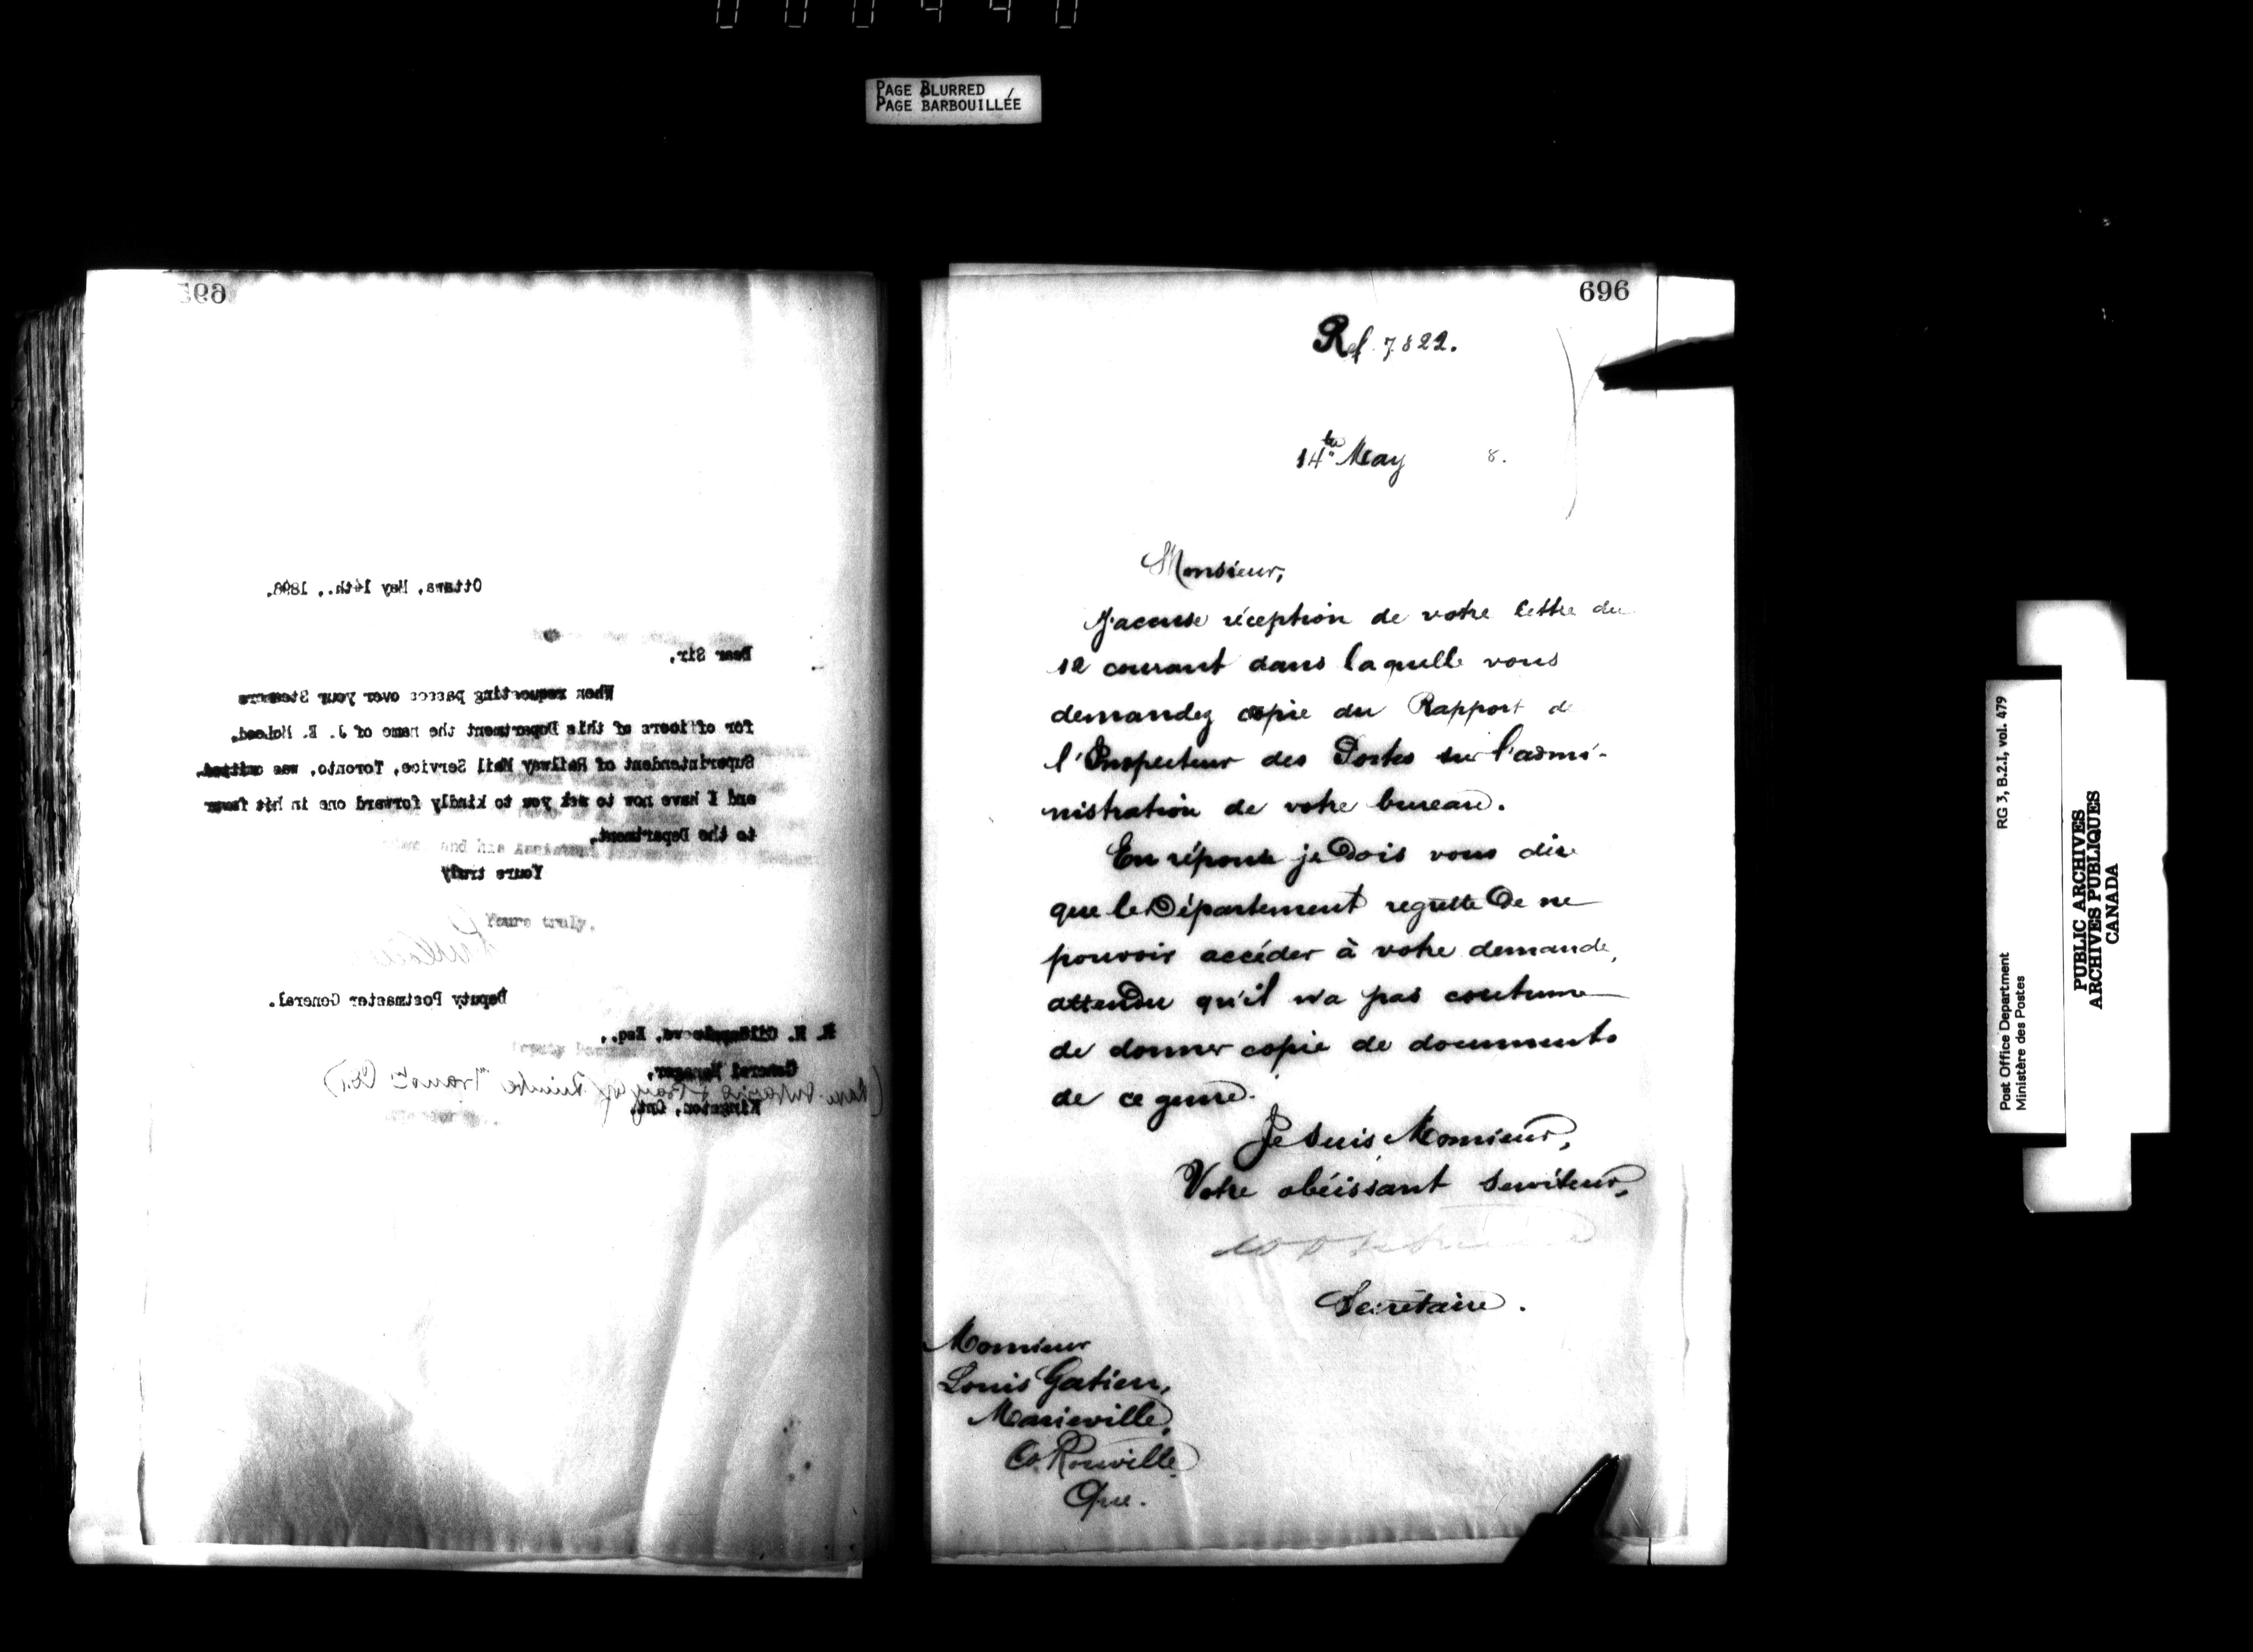 PAGE BLURRED
PAGE BARBOUILLÉE
695
Ottawa, May 14th., 1898.
Dear Sir,
When requesting passes over your Steamers
for officers of this Department the name of J. E. McLeod,
Superintendent of Railway Mail Service, Toronto, was omitted,
and I have now to ask you to kindly forward one in his favor
to the Department.
and his Assistant
Yours truly
Yours truly,
Deputy Postmaster General.
H. H. Gildersleeve, Esq.,
General Manager,
Kingston, Ont.
696
Ref. 7822.
14th May 8.
Monsieur,
J'accuse réception de votre lettre du
12 courant dans laquelle vous
demandez copie du Rapport de
l'Inspecteur des Postes sur l'admi-
nistration de votre bureau.
En réponse je dois vous dire
que le Département regrette de ne
pouvoir accéder à votre demande,
attendu qu'il n'a pas coutume
de donner copie de documents
de ce genre.
Je suis, Monsieur,
Votre obéissant serviteur,
Secrétaire.
Monsieur
Louis Gatien,
Marieville,
Co. Rouville
Que.
RG 3, B.2.I, vol. 479
Post Office Department
Ministère des Postes
PUBLIC ARCHIVES
ARCHIVES PUBLIQUES
CANADA